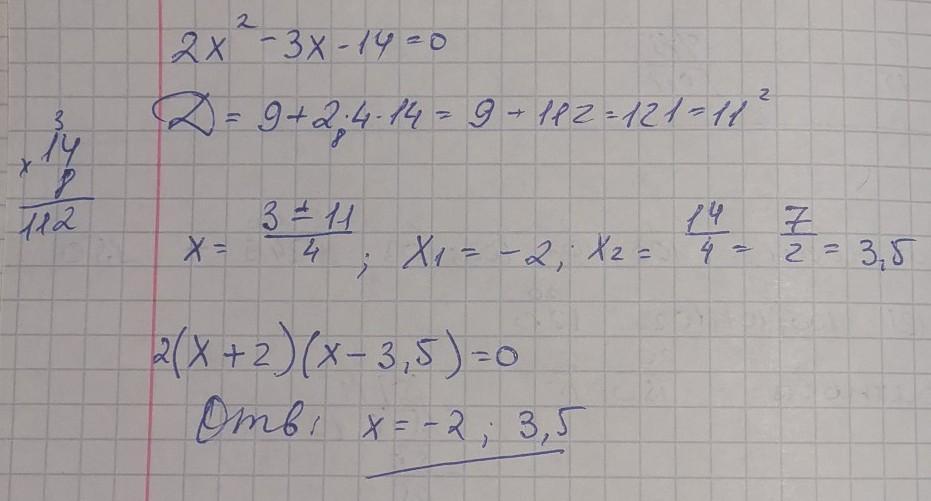 2x² - 3x - 14 = 0
D = 9 + 2·4·14 = 9 + 112 = 121 = 11²
8
3
× 14
8
112
x = (3 ± 11)/4 ; x₁ = -2 ; x₂ = 14/4 = 7/2 = 3,5
2(x + 2)(x - 3,5) = 0
Отв: x = -2 ; 3,5